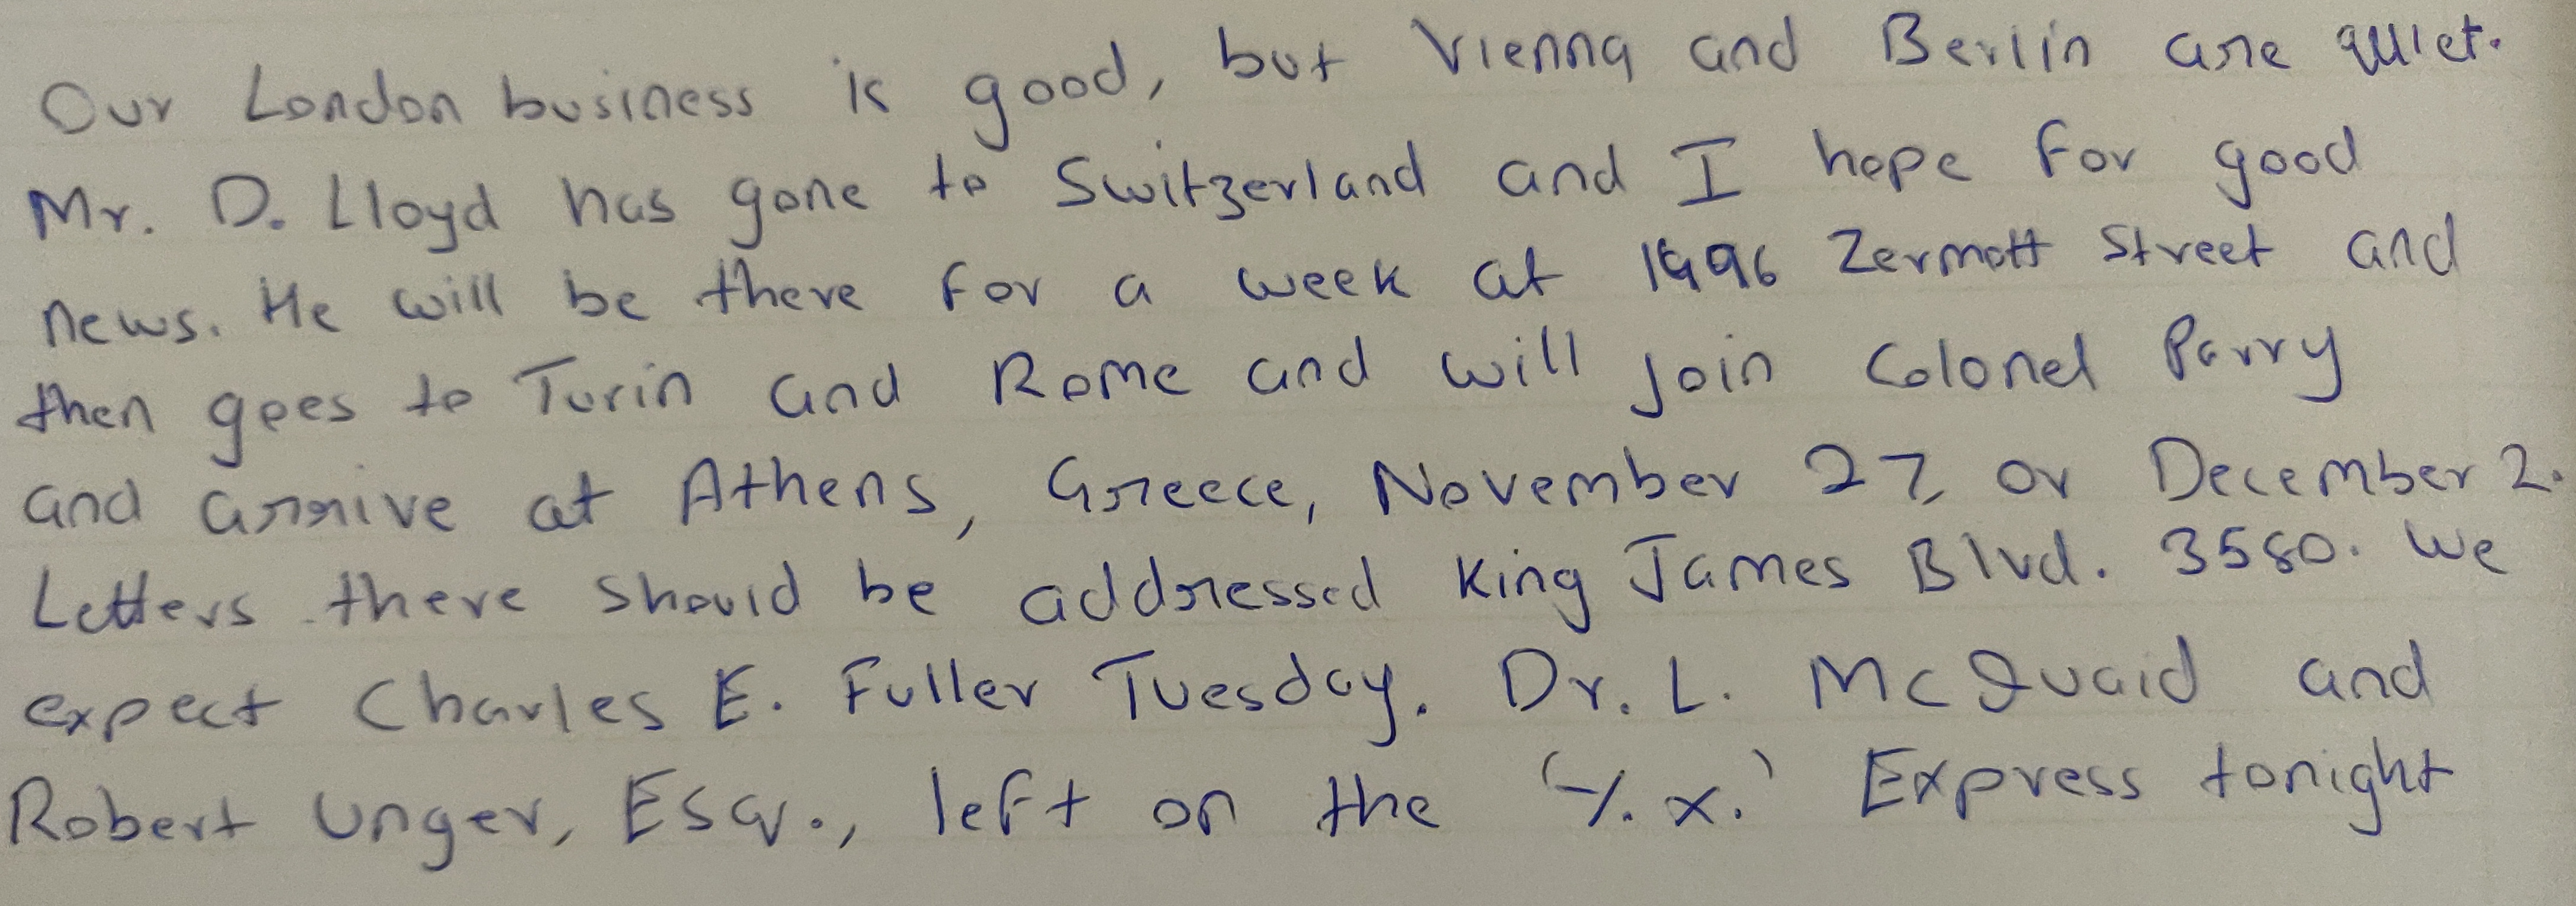 Our London business is good, but Vienna and Berlin are quiet.
Mr. D. Lloyd has gone to Switzerland and I hope for good
news. He will be there for a week at 1996 Zermott Street and
then goes to Turin and Rome and will join Colonel Parry
and arrive at Athens, Greece, November 27, or December 2.
Letters there should be addressed King James Blvd. 3580. We
expect Charles E. Fuller Tuesday. Dr. L. McQuaid and
Robert Unger, Esq., left on the 'Y. X.' Express tonight